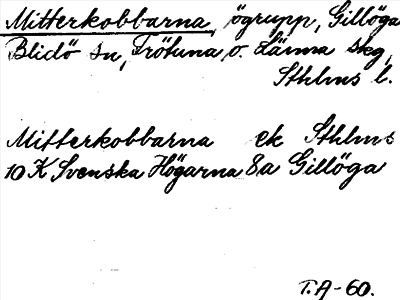 Mitterkobbarna, ögrupp, Gillöga
Blidö sn, Frötuna o. Länna skg,
Sthlms l.
Mitterkobbarna ek Sthlms
10 K Svenska Högarna 8a Gillöga
T.A-60.